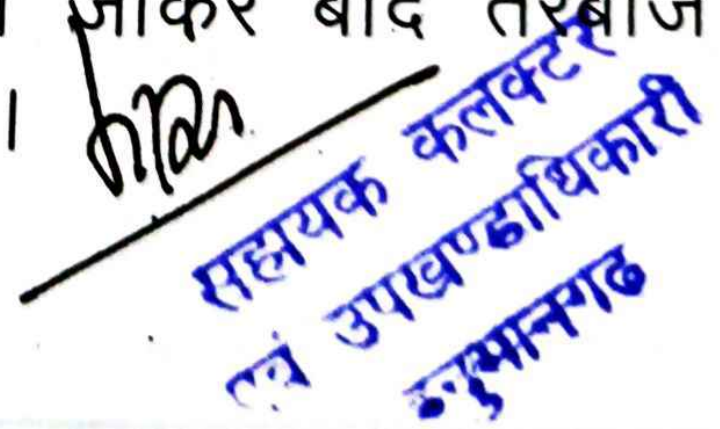 जाकर बाद तरबीज
।
सहायक कलक्टर
एवं उपखण्डाधिकारी
हनुमानगढ